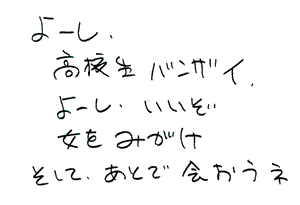 よーし、
高校生 バンザイ、
よーし、いいぞ
女をみがけ
そして、あとで 会おうネ